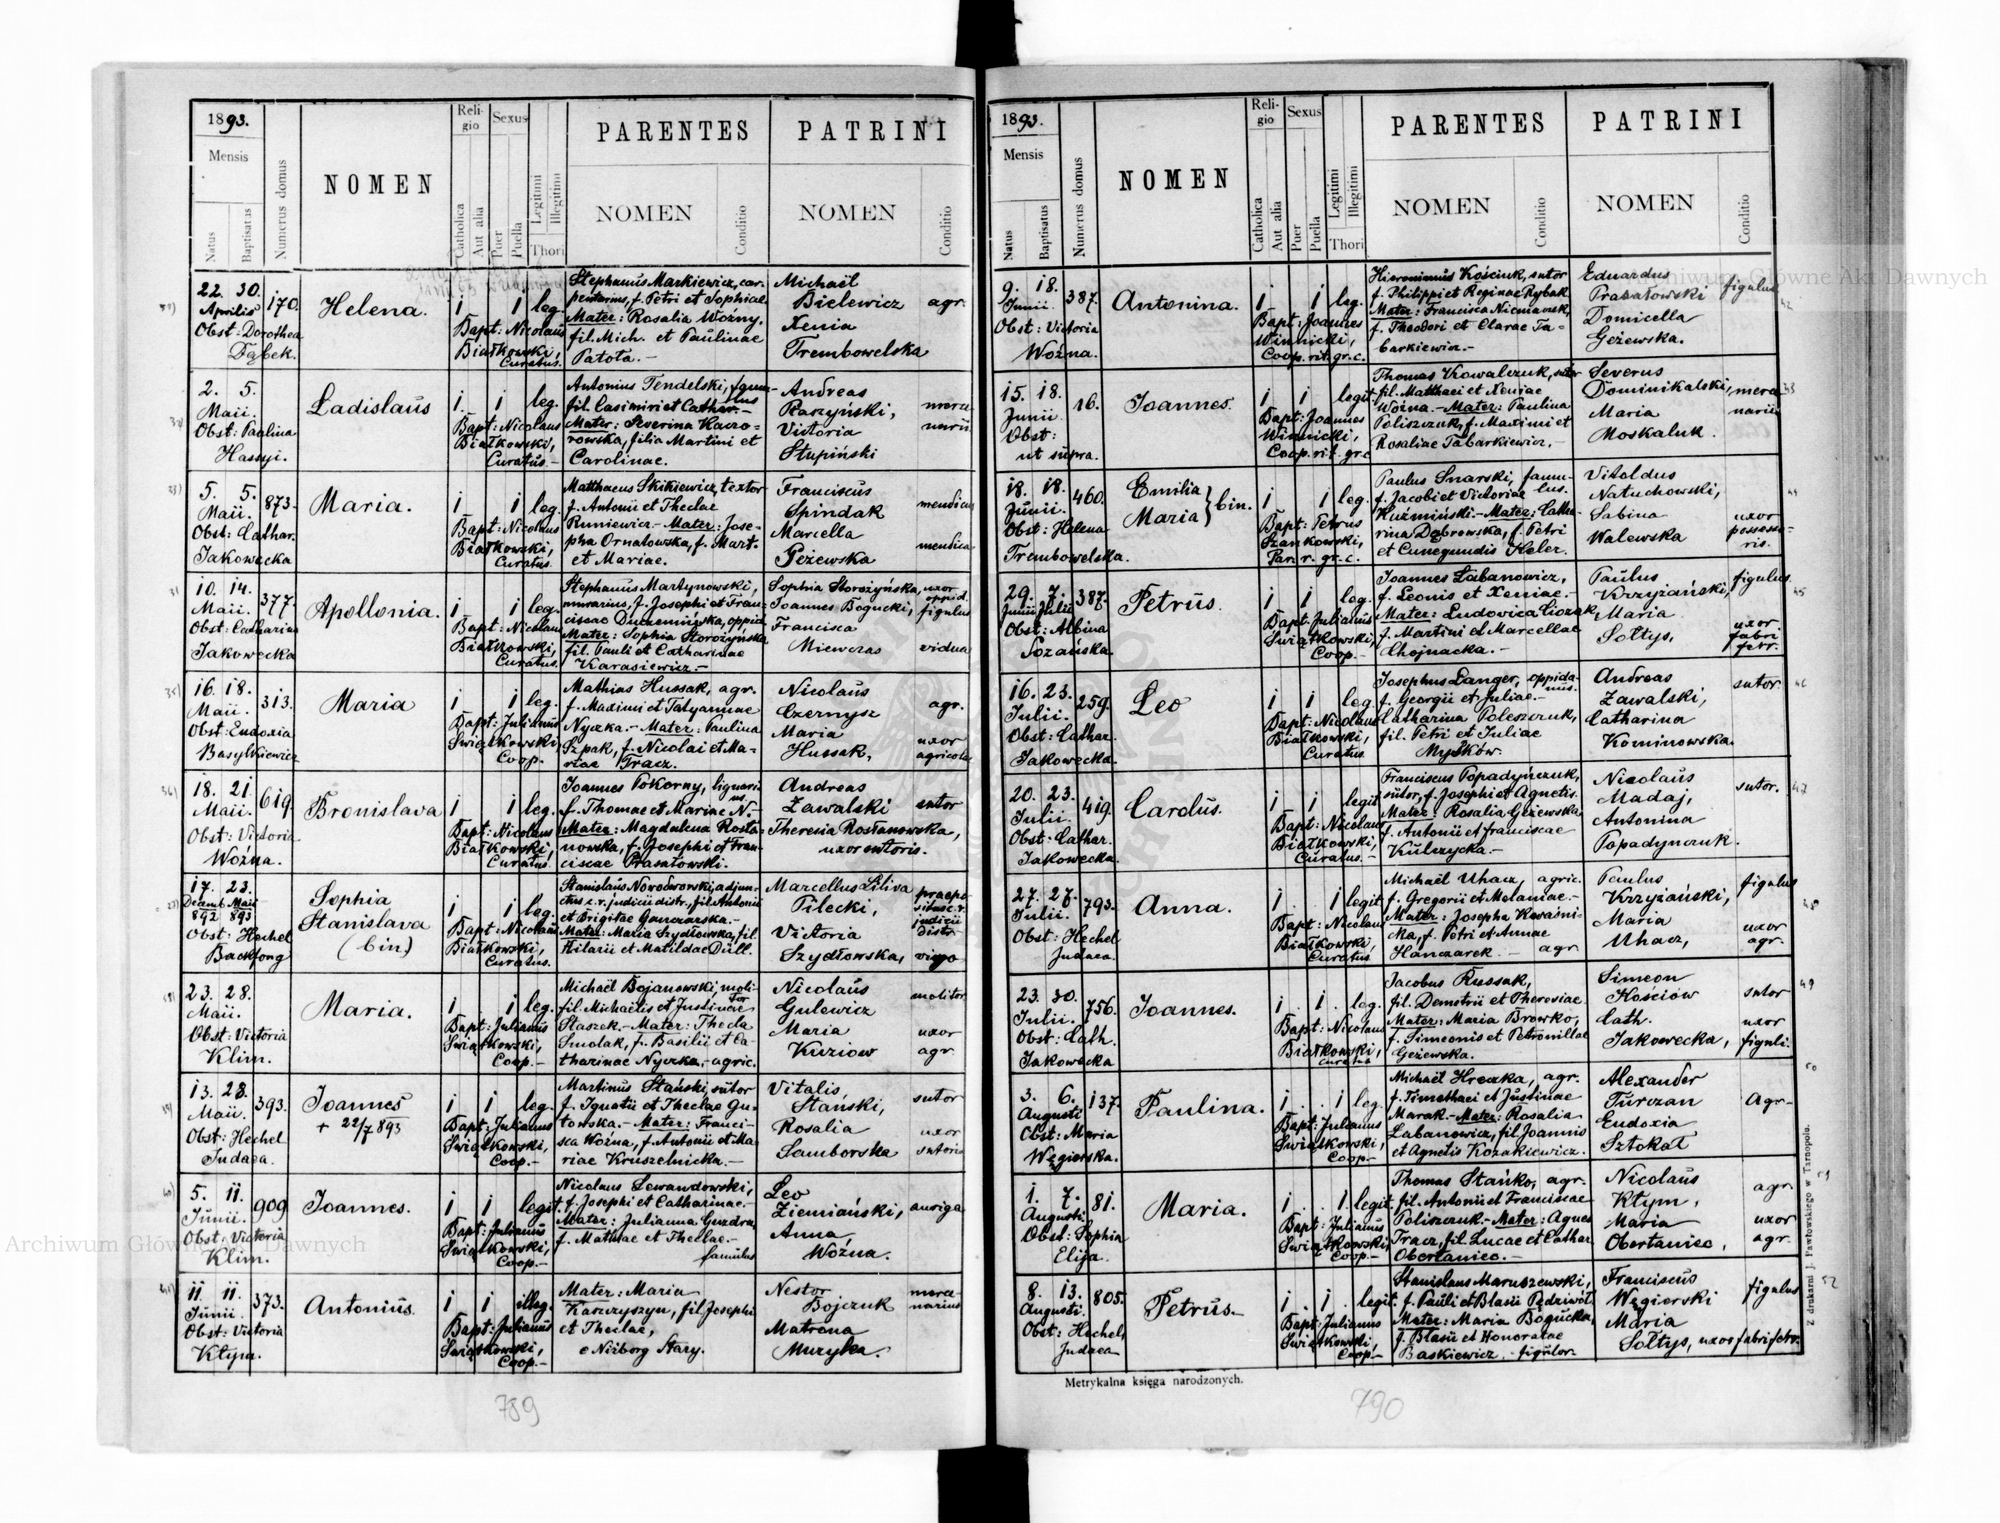 1893.
Mensis
Natus
Baptisatus
Numerus domus
NOMEN
Religio
Catholica
Aut alia
Sexus
Puer
Puella
Legitimi
Illegitimi
Thori
PARENTES
NOMEN
Conditio
PATRINI
NOMEN
Conditio
22. 30.
Aprilis
170.
Obst: Dorothea
Dąbek.
Helena.
1 1 leg.
Bapt: Nicolaus
Białkowski,
Curatus.
Stephanus Markiewicz, car-
pentarius, f. Petri et Sophiae
Mater: Rosalia Woźny,
fil. Mich. et Paulinae
Patota.-
Michaël
Bielewicz agr.
Xenia
Trembowelska
2. 5.
Maii.
Obst: Paulina
Hassyi.
Ladislaus
1. 1 leg.
Bapt: Nicolaus
Białkowski,
Curatus.-
Antonius Tendelski, famu-
lus
fil. Casimiri et Cathar.-
Mater: Severina Kaczo-
rowska, filia Martini et
Carolinae.
Andreas
Raszyński,
Victoria
Słupiński
5. 5.
Maii.
873.
Obst: Cathar.
Jakowecka
Maria.
1 1 leg.
Bapt: Nicolaus
Białkowski,
Curatus.
Matthaeus Skikiewicz, textor
f. Antonii et Theclae
Runiewicz.- Mater: Jose-
pha Ornatowska, f. Mart.
et Mariae.
Franciscus
Spindak mendicus
Marcella
Geżewska mendica
10. 14.
Maii.
377.
Obst: Catharina
Jakowecka
Apollonia.
1 1 leg.
Bapt: Nicolaus
Białkowski,
Curatus.
Stephanus Martynowski,
murarius, f. Josephi et Fran-
ciscae, oppid.
Mater: Sophia Storożyńska
fil. Pauli et Catharinae
Karasiewicz.-
Sophia Storożyńska, uxor
oppid.
Joannes Bogucki, figulus
Francisca
Miewczas vidua
16. 18.
Maii.
313.
Obst: Eudoxia
Basylkiewicz
Maria
1 1 leg.
Bapt: Julianus
Świątkowski
Coop.
Mathias Hussak, agr.
f. Maximi et Tatyannae
Nyczka.- Mater: Paulina
Szpak, f. Nicolai et Ma-
riae Tracz.
Nicolaus
Czernysz agr.
Maria
Hussak, uxor
agricolae
18. 21.
Maii.
619.
Obst: Victoria
Woźna.
Bronislava
1 1 leg.
Bapt: Nicolaus
Białkowski,
Curatus.
Joannes Pokorny, lignari-
us.
f. Thomae et Mariae N.-
Mater: Magdalena Rosta-
nowska, f. Josephi et Fran-
ciscae Prasałowski.
Andreas
Zawalski sutor
Theresia Rostanowska,
uxor sutoris.
17. 23.
Decemb. Maii
892 893
Obst: Hechel
Backfong
Sophia
Stanislava
(bin)
1 leg.
Bapt: Nicolaus
Białkowski,
Curatus.
Stanislaus Nowodworski, adjun-
ctus c.r. judicii distr., fil. Antonii
et Brigitae Ganczarska.-
Mater: Maria Szydłowska, fil.
Hilarii et Matildae Düll.
Marcellus Liliva
Pilecki,
Victoria
Szydłowska, virgo
23. 28.
Maii.
Obst: Victoria
Klim.
Maria.
1 1 leg.
Bapt: Julianus
Świątkowski,
Coop.-
Michaël Bojanowski, moli-
tor
fil. Michaëlis et Justinae
Staszek.- Mater: Thecla
Smolak, f. Basilii et Ca-
tharinae Nyczka,- agric.
Nicolaus
Gulewicz molitor
Maria uxor
Kuziow agr.
13. 23.
Maii.
393.
Obst: Hechel
Judaea.
Joannes
+ 22/7 893
1 1 leg.
Bapt: Julianus
Świątkowski,
Coop.-
Martinus Stański, sutor
f. Ignatii et Theclae Gu-
towska.- Mater: Franci-
sca Woźna, f. Antonii et Ma-
riae Kruszelnicka.-
Vitalis
Stański, sutor
Rosalia uxor
Samborska sutoris
5. 11.
Junii.
909
Obst: Victoria
Klim.
Joannes.
1 1 legit.
Bapt: Julianus
Świątkowski,
Coop.-
Nicolaus Lewandowski,
f. Josephi et Catharinae.-
Mater: Julianna Guzdra,
f. Mathiae et Theclae.-
famulus
Leo
Ziemiański, auriga
Anna
Woźna.
11. 11.
Junii.
373.
Obst: Victoria
Kłym.
Antonius.
1 1 illeg.
Bapt: Julianus
Świątkowski,
Coop.-
Mater: Maria
Karczyszyn, fil. Josephi
et Theclae,
e Niiborg Stary.
Nestor
Bojczuk merce-
narius
Matrona
Muzyka.
789
1893.
Mensis
Natus
Baptisatus
Numerus domus
NOMEN
Religio
Catholica
Aut alia
Sexus
Puer
Puella
Legitimi
Illegitimi
Thori
PARENTES
NOMEN
Conditio
PATRINI
NOMEN
Conditio
9. 18.
Junii.
387.
Obst: Victoria
Woźna.
Antonina.
1 1 leg.
Bapt: Joannes
Winnicki,
Coop. rit. gr. c.
Hieronimus Kościuk, sutor
f. Philippi et Reginae Rybak
Mater: Francisca Niemiarek,
f. Theodori et Clarae Ta-
barkiewicz.-
Eduardus
Prasałowski figulus
Domicella
Geżewska.
42
15. 18.
Junii
16.
Obst:
ut supra.
Joannes.
1 1 legit.
Bapt: Joannes
Winnicki,
Coop. rit. gr. c
Thomas Kowalczuk, sutor
fil. Matthaei et Xeniae
Woźna.- Mater: Paulina
Poliszczuk, f. Maximi et
Rosaliae Tabarkiewicz.-
Severus
Dominikalski, merce-
Maria narius
Moskaluk.
43
18. 18.
Junii.
460.
Obst: Helena
Trembowelska.
Emilia
Maria } bin.
1 1 leg.
Bapt: Petrus
Szankowski,
Par. r. gr. c.
Paulus Snarski, famu-
lus.
f. Jacobi et Victoriae
Kuźmiński.- Mater: Catha-
rina Dąbrowska, f. Petri
et Cunegundis Keler.
Vitoldus
Natuchowski,
Sabina uxor
Walewska possesso-
ris.
44
29. 7.
Junii Julii
387.
Obst: Albina
Petrus.
1 1 leg.
Bapt. Julianus
Świątkowski,
Coop.-
Joannes Łabanowicz,
f. Leonis et Xeniae.-
Mater: Ludovica Ciozak,
f. Martini et Marcellae
Chojnacka.-
Paulus figulus
Krzyżański,
Maria
Sołtys, uxor
fabri
ferr.
45
16. 23.
Julii.
259.
Obst: Cathar.
Jakowecka.
Leo
1 1 leg.
Bapt: Nicolaus
Białkowski,
Curatus.
Josephus Langer, oppida-
nus.
f. Georgii et Juliae.-
Catharina Poleszczuk,
fil. Petri et Juliae
Myśków.
Andreas
Zawalski, sutor.
Catharina
Kominowska.
46
20. 23.
Julii.
419.
Obst: Cathar.
Jakowecka.
Carolus.
1 1 legit.
Bapt: Nicolaus
Białkowski,
Curatus.-
Franciscus Popadyńczuk,
sutor, f. Josephi et Agnetis.
Mater: Rosalia Geżewska
f. Antonii et Franciscae
Kulczycka.-
Nicolaus
Madaj, sutor.
Antonina
Popadynczuk.
47
27. 27.
Julii.
793.
Obst: Hechel
Judaea.
Anna.
1 1 legit.
Bapt: Nicolaus
Białkowski,
Curatus.
Michaël Uhacz, agric.
f. Gregorii et Melaniae.-
Mater: Josepha Kwaśni-
cka, f. Petri et Annae
Hanczarek.- agr.
Paulus figulus
Krzyżański,
Maria uxor
Uhacz, agr.
48
23. 30.
Julii.
756.
Obst: Cath.
Jakowecka
Joannes.
1 1 leg.
Bapt: Nicolaus
Białkowski,
Curatus
Jacobus Russak,
fil. Demetrii et Theresiae
Mater: Maria Browko,
f. Simeonis et Petronillae
Geżewska.
Simeon
Kościów sutor
Cath. uxor
Jakowecka, figuli.
49
3. 6.
Augusti
137.
Obst: Maria
Węgierska.
Paulina.
1 1 leg.
Bapt: Julianus
Świątkowski,
Coop.-
Michaël Hreczka, agr.
f. Timothaei et Justinae
Marak.- Mater: Rosalia
Łabanowicz, fil Joannis
et Agnetis Kozakiewicz.
Alexander
Turczan Agr.
Eudoxia
Sztokał
50
1. 7.
Augusti.
81.
Obst: Sophia
Elija.
Maria.
1 1 legit.
Bapt: Julianus
Świątkowski,
Coop.-
Thomas Stańko, agr.
fil. Antonii et Franciscae
Poliszczuk.- Mater: Agnes
Tracz, fil. Lucae et Cathar.
Obertaniec.-
Nicolaus agr.
Kłym,
Maria uxor
Obertaniec, agr.
51
8. 13.
Augusti.
805.
Obst: Hechel,
Judaea
Petrus.-
1 1 legit.
Bapt: Julianus
Świątkowski,
Coop.-
Stanislaus Maruszewski,
f. Pauli et Blasii Pędziwót.
Mater: Maria Bogucka,
f. Blasii et Honoratae
Baskiewicz.- figulor.
Franciscus
Węgierski figulus
Maria
Sołtys, uxor fabri ferr.
52
Metrykalna księga narodzonych.
Z drukarni J. Pawłowskiego w Tarnopolu.
790
Archiwum Główne Akt Dawnych
Archiwum Główne Akt Dawnych